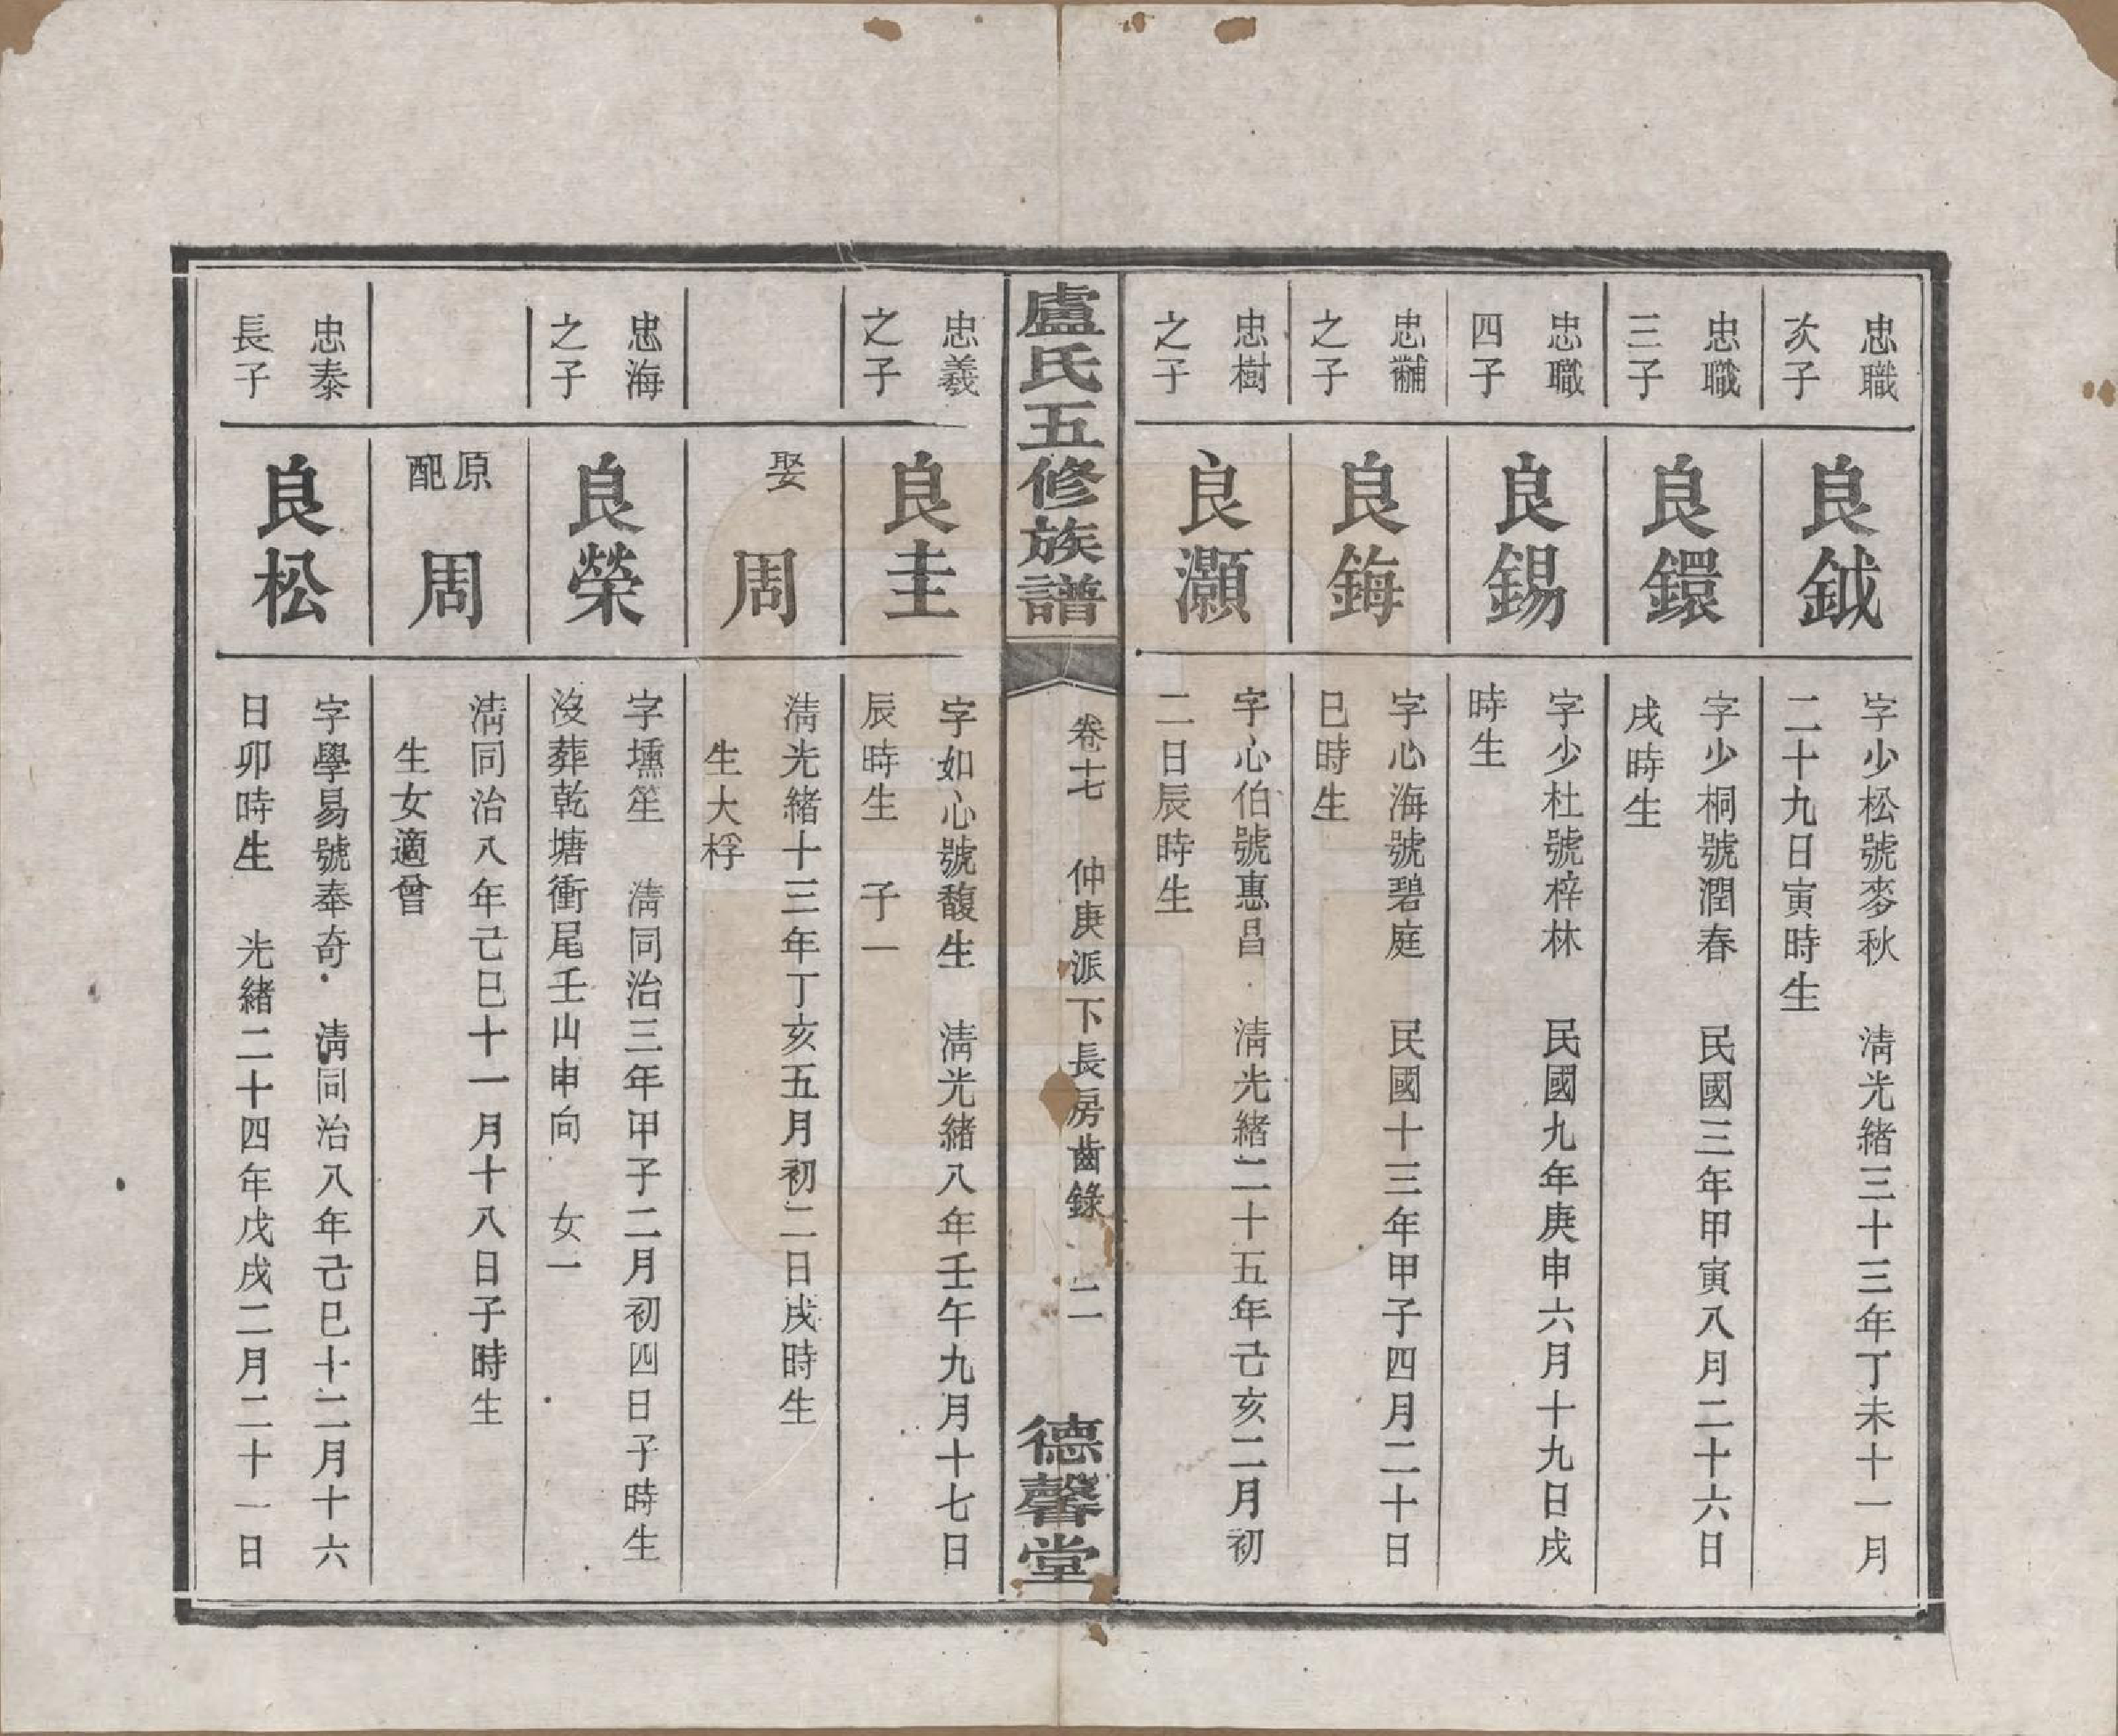 忠職
次子
良鉞
字少松號麥秋　清光緒三十三年丁未十一月
二十九日寅時生
忠職
三子
良鐶
字少桐號潤春　民國三年甲寅八月二十六日
戌時生
忠職
四子
良錫
字少杜號梓林　民國九年庚申六月十九日戌
時生
忠黼
之子
良鋂
字心海號碧庭　民國十三年甲子四月二十日
巳時生
忠樹
之子
良灝
字心伯號惠昌　清光緒二十五年己亥二月初
二日辰時生
盧氏五修族譜
卷十七　仲庚派下長房齒錄　二
德馨堂
忠羲
之子
良圭
字如心號馥生　清光緒八年壬午九月十七日
辰時生　子一
娶
周
清光緒十三年丁亥五月初二日戌時生
生大桴
忠海
之子
良榮
字壎笙　清同治三年甲子二月初四日子時生
沒葬乾塘衝尾壬山申向　女一
原
配
周
清同治八年己巳十一月十八日子時生
生女適曾
忠泰
長子
良松
字學易號奉奇　清同治八年己巳十二月十六
日卯時生　光緒二十四年戊戌二月二十一日